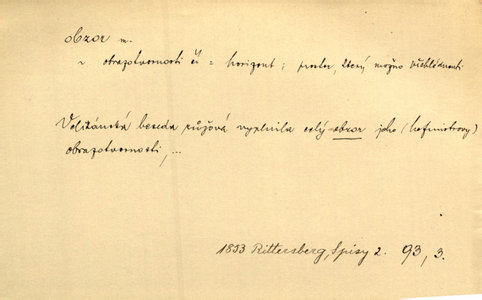 obzor m.
~ obrazotvornosti čí = horizont; prostor, který možno všehlédnouti
Velikánská beseda růžová vyplnila celý obzor jeho (hofmistrovy)
obrazotvornosti, ...
1833 Rittersberg, Spisy 2. 93, 3.